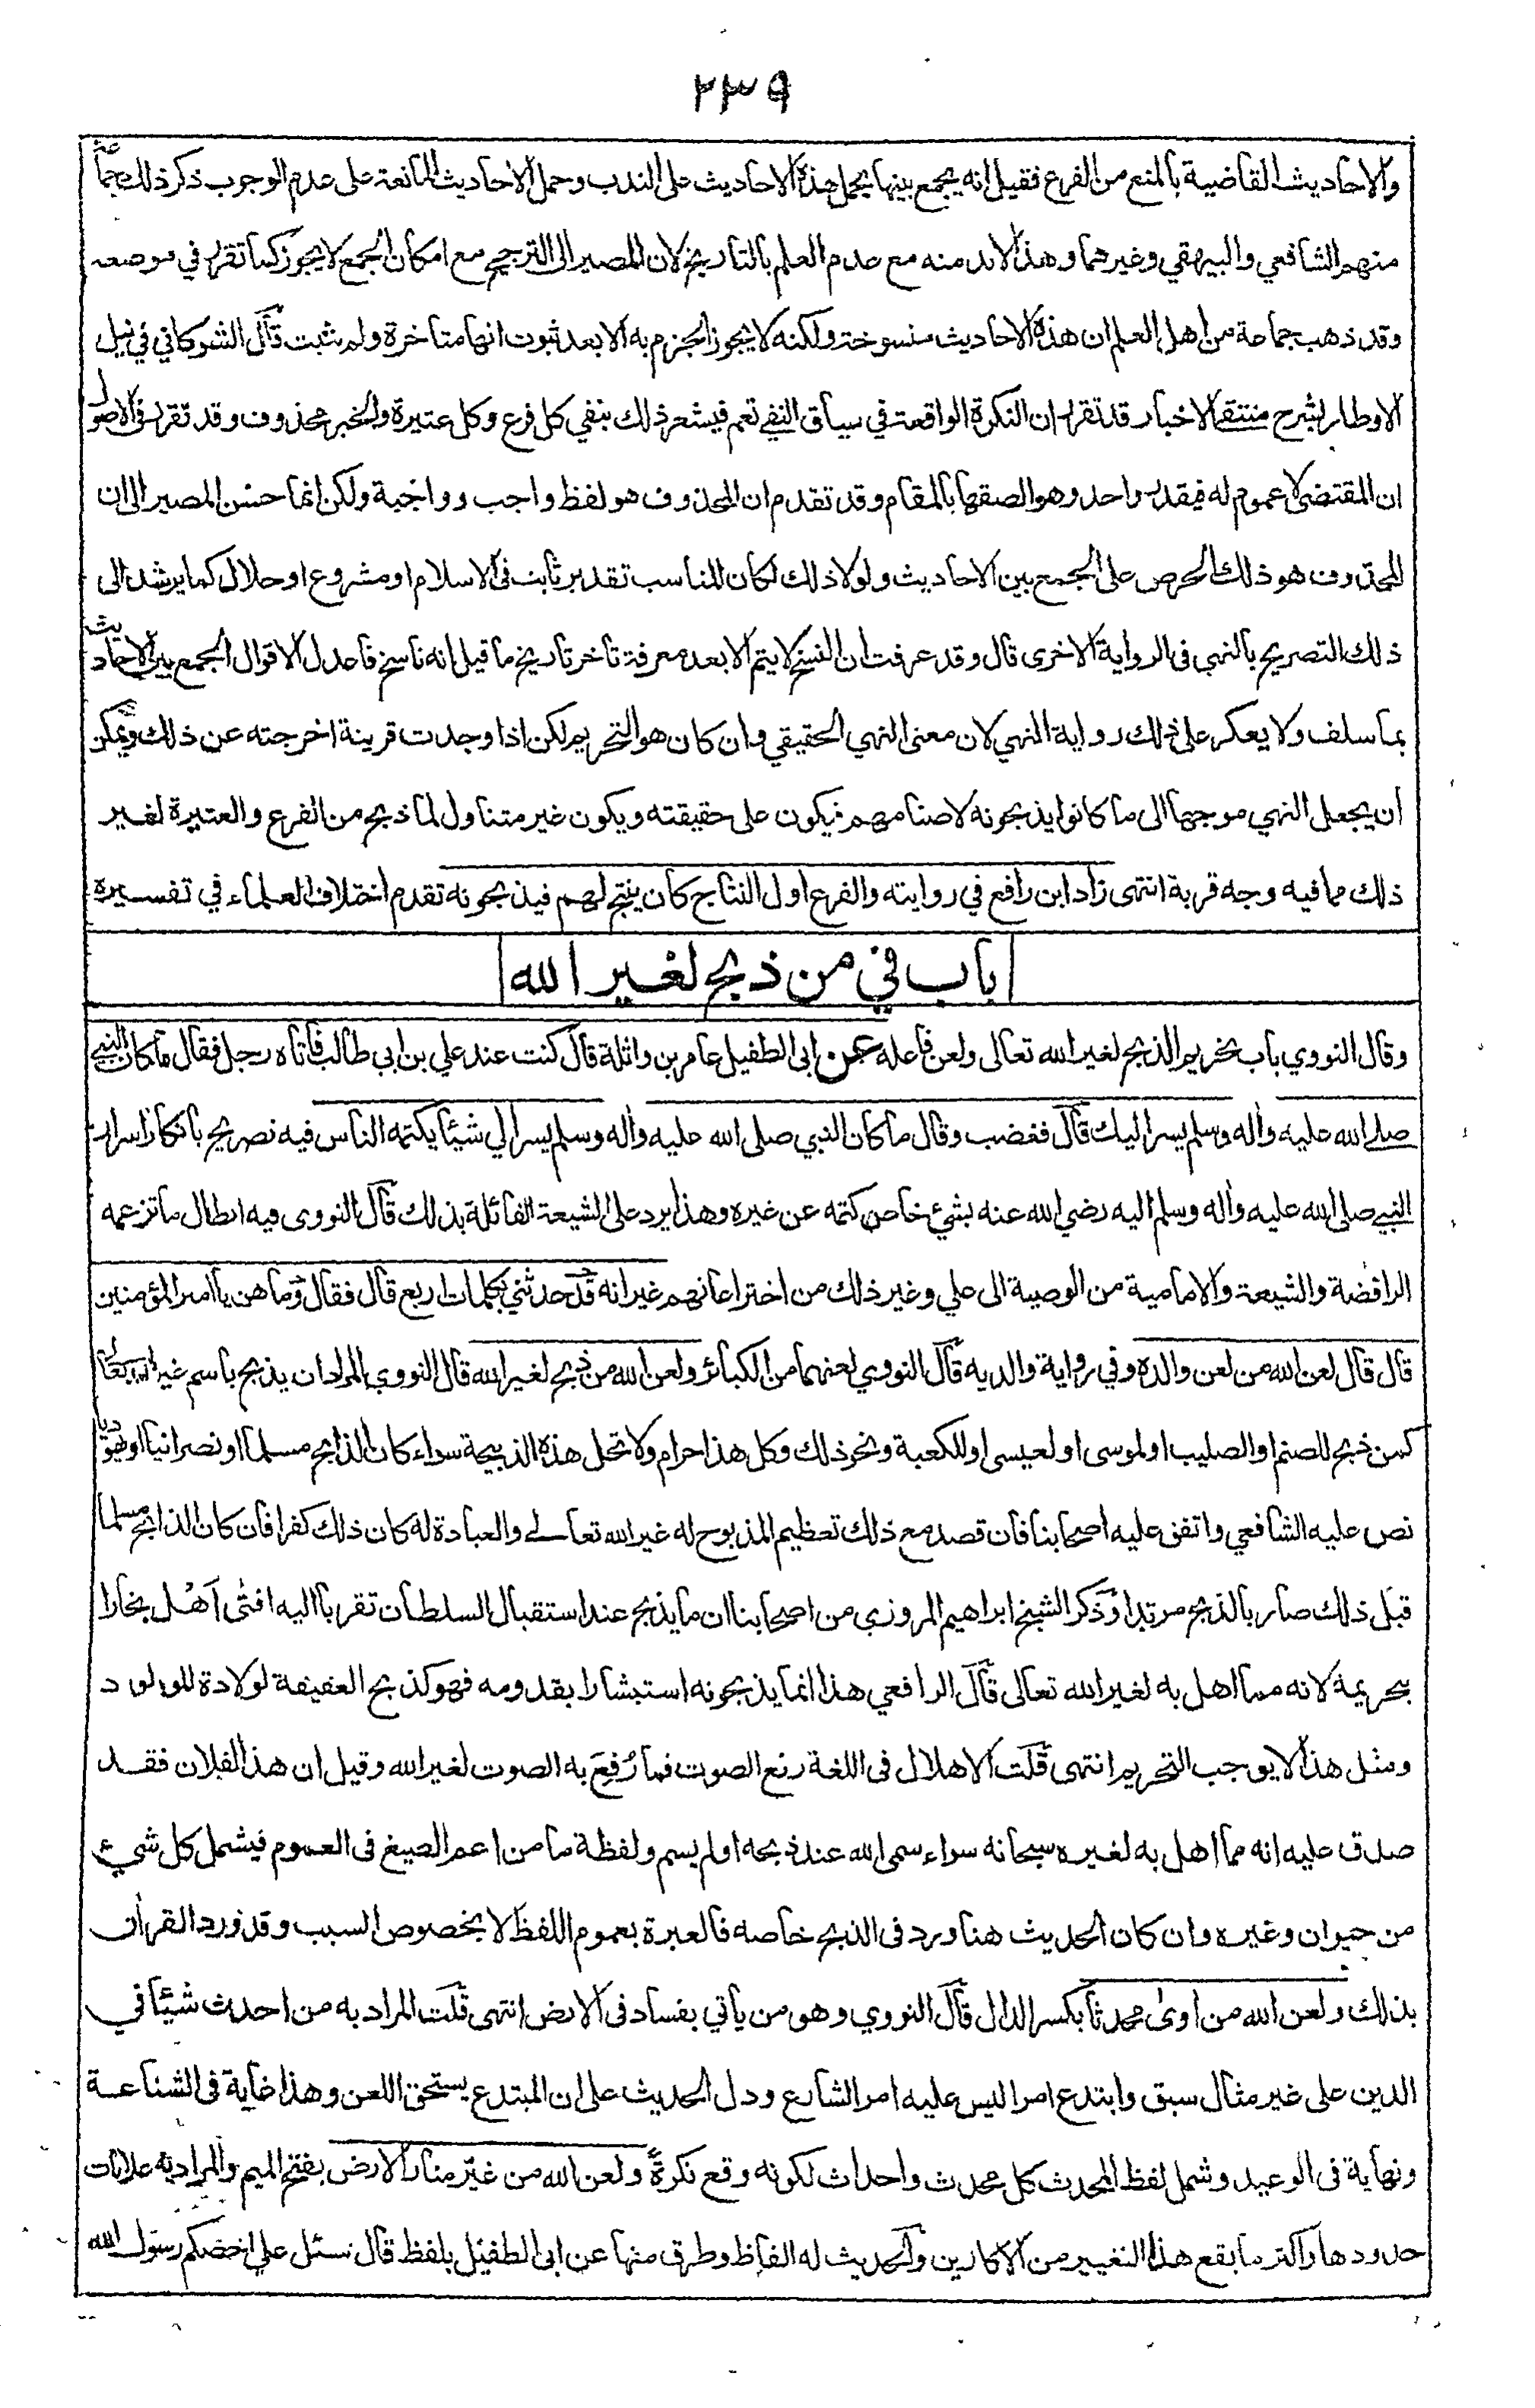 ٢٣٩
والاحاديث القاضية بالمنع من الفرع فقيل انه يجمع بينها بحمل هذه الاحاديث على الندب وحمل الاحاديث المانعة على عدم الوجوب ذكر ذلك جماعة
منهم الشافعي والبيهقي وغيرهما وهذا لابد منه مع عدم العلم بالتاريخ لان المصير الى الترجيح مع امكان الجمع لا يجوز كما تقرر في موضعه
وقد ذهب جماعة من اهل العلم ان هذه الاحاديث منسوخة ولكنه لا يجوز الجزم به الا بعد ثبوت انها متأخرة ولم يثبت قال الشوكاني في نيل
الاوطار بشرح منتقى الاخبار قد تقرر ان النكرة الواقعة في سياق النفي تعم فيشعر ذلك بنفي كل فرع وكل عتيرة والخبر محذوف وقد تقرر في الاصول
ان المقتضى لا عموم له فيقدر واحد وهو الصقها بالمقام وقد تقدم ان المحذوف هو لفظ واجب وواجبة ولكن انما حسن المصير الى ان
المحذوف هو ذلك الحرص على الجمع بين الاحاديث ولولا ذلك لكان المناسب تقدير ثابت في الاسلام او مشروع او حلال كما يرشد الى
ذلك التصريح بالنهي في الرواية الاخرى قال وقد عرفت ان النسخ لا يتم الا بعد معرفة تأخر تاريخ ما قيل انه ناسخ فاعدل الاقوال الجمع بين الاحاديث
بما سلف ولا يعكر على ذلك رواية النهي لان معنى النهي الحقيقي وان كان هو التحريم لكن اذا وجدت قرينة اخرجته عن ذلك ويمكن
ان يجعل النهي موجها الى ما كانوا يذبحونه لاصنامهم فيكون على حقيقته ويكون غير متناول لما ذبح من الفرع والعتيرة لغير
ذلك مما فيه وجه قربة انتهى زاد ابن رافع في روايته والفرع اول النتاج كان ينتج لهم فيذبحونه تقدم اختلاف العلماء في تفسيره
باب في من ذبح لغير الله
وقال النووي باب تحريم الذبح لغير الله تعالى ولعن فاعله عن ابي الطفيل عامر بن واثلة قال كنت عند علي بن ابي طالب فأتاه رجل فقال ما كان النبي
صلى الله عليه وآله وسلم يسر اليك قال فغضب وقال ما كان النبي صلى الله عليه وآله وسلم يسر الي شيئا يكتمه الناس فيه تصريح بانكار اسرار
النبي صلى الله عليه وآله وسلم اليه رضي الله عنه بشيء خاص كتمه عن غيره وهذا يرد على الشيعة القائلة بذلك قال النووي فيه ابطال ما تزعمه
الرافضة والشيعة والامامية من الوصية الى علي وغير ذلك من اختراعاتهم غير انه قد حدثني بكلمات اربع قال فقال وما هن يا امير المؤمنين
قال قال لعن الله من لعن والده وفي رواية والديه قال النووي لعنهما من الكبائر ولعن الله من ذبح لغير الله قال النووي المراد ان يذبح باسم غير الله تعالى
كمن ذبح للصنم او الصليب او لموسى او لعيسى او للكعبة ونحو ذلك وكل هذا حرام ولا تحل هذه الذبيحة سواء كان الذابح مسلما او نصرانيا او يهوديا
نص عليه الشافعي واتفق عليه اصحابنا فان قصد مع ذلك تعظيم المذبوح له غير الله تعالى والعبادة له كان ذلك كفرا فان كان الذابح مسلما
قبل ذلك صار بالذبح مرتدا وذكر الشيخ ابراهيم المروزي من اصحابنا ان ما يذبح عند استقبال السلطان تقربا اليه افتى اهل بخارا
بتحريمه لانه مما اهل به لغير الله تعالى قال الرافعي هذا انما يذبحونه استبشارا بقدومه فهو كذبح العقيقة لولادة المولود
ومثل هذا لا يوجب التحريم انتهى قلت الاهلال في اللغة رفع الصوت فما رُفِعَ به الصوت لغير الله وقيل ان هذا لفلان فقد
صدق عليه انه مما اهل به لغيره سبحانه سواء سمى الله عند ذبحه او لم يسم ولفظة ما من اعم الصيغ في العموم فيشمل كل شيء
من حيوان وغيره وان كان الحديث هنا ورد في الذبح خاصه فالعبرة بعموم اللفظ لا بخصوص السبب وقد ورد القرآن
بذلك ولعن الله من آوى محدثا بكسر الدال قال النووي وهو من يأتي بفساد في الارض انتهى قلت المراد به من احدث شيئا في
الدين على غير مثال سبق وابتدع امرا ليس عليه امر الشارع ودل الحديث على ان المبتدع يستحق اللعن وهذا غاية في الشناعة
ونهاية في الوعيد وشمل لفظ المحدث كل محدث واحداث لكونه وقع نكرةً ولعن الله من غيّر منار الارض بفتح الميم والمراد به علامات
حدودها واكثر ما يقع هذا التغيير من الاكارين والحديث له الفاظ وطرق منها عن ابي الطفيل بلفظ قال سئل علي اخصكم رسول الله